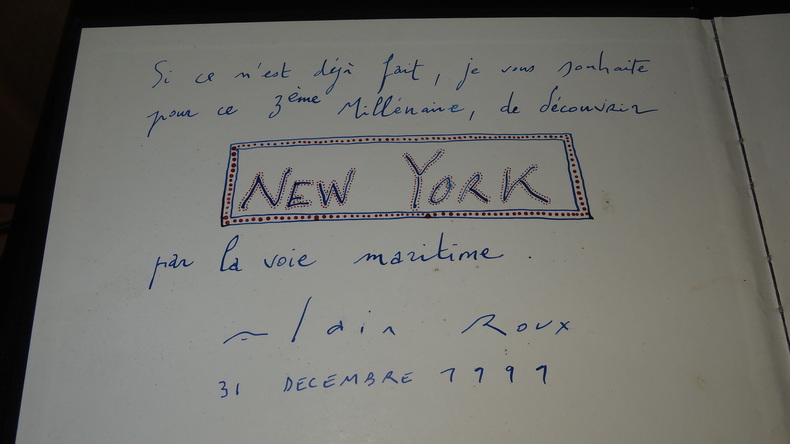 Si ce n'est déjà fait, je vous souhaite
pour ce 3ème Millénaire, de découvrir
NEW YORK
par la voie maritime.
Alain Roux
31 DECEMBRE 1999